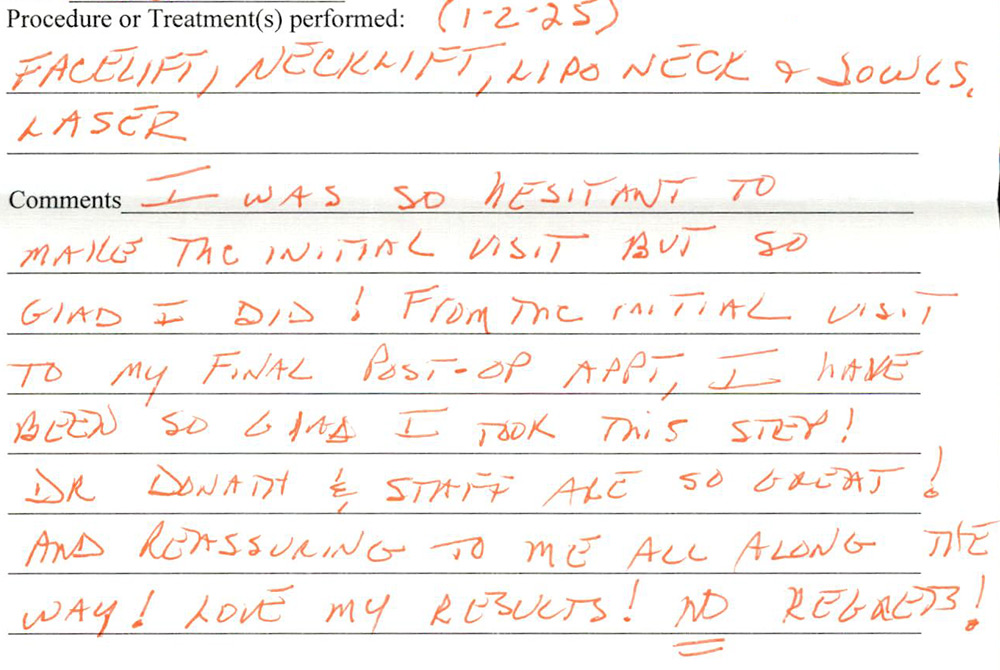 Procedure or Treatment(s) performed: (1-2-25)
FACELIFT, NECKLIFT, LIPO NECK & JOWLS,
LASER
Comments I WAS SO HESITANT TO
MAKE THE INITIAL VISIT BUT SO
GLAD I DID! FROM THE INITIAL VISIT
TO MY FINAL POST-OP APPT, I HAVE
BEEN SO GLAD I TOOK THIS STEP!
DR DONATH & STAFF ARE SO GREAT!
AND REASSURING TO ME ALL ALONG THE
WAY! LOVE MY RESULTS! NO REGRETS!